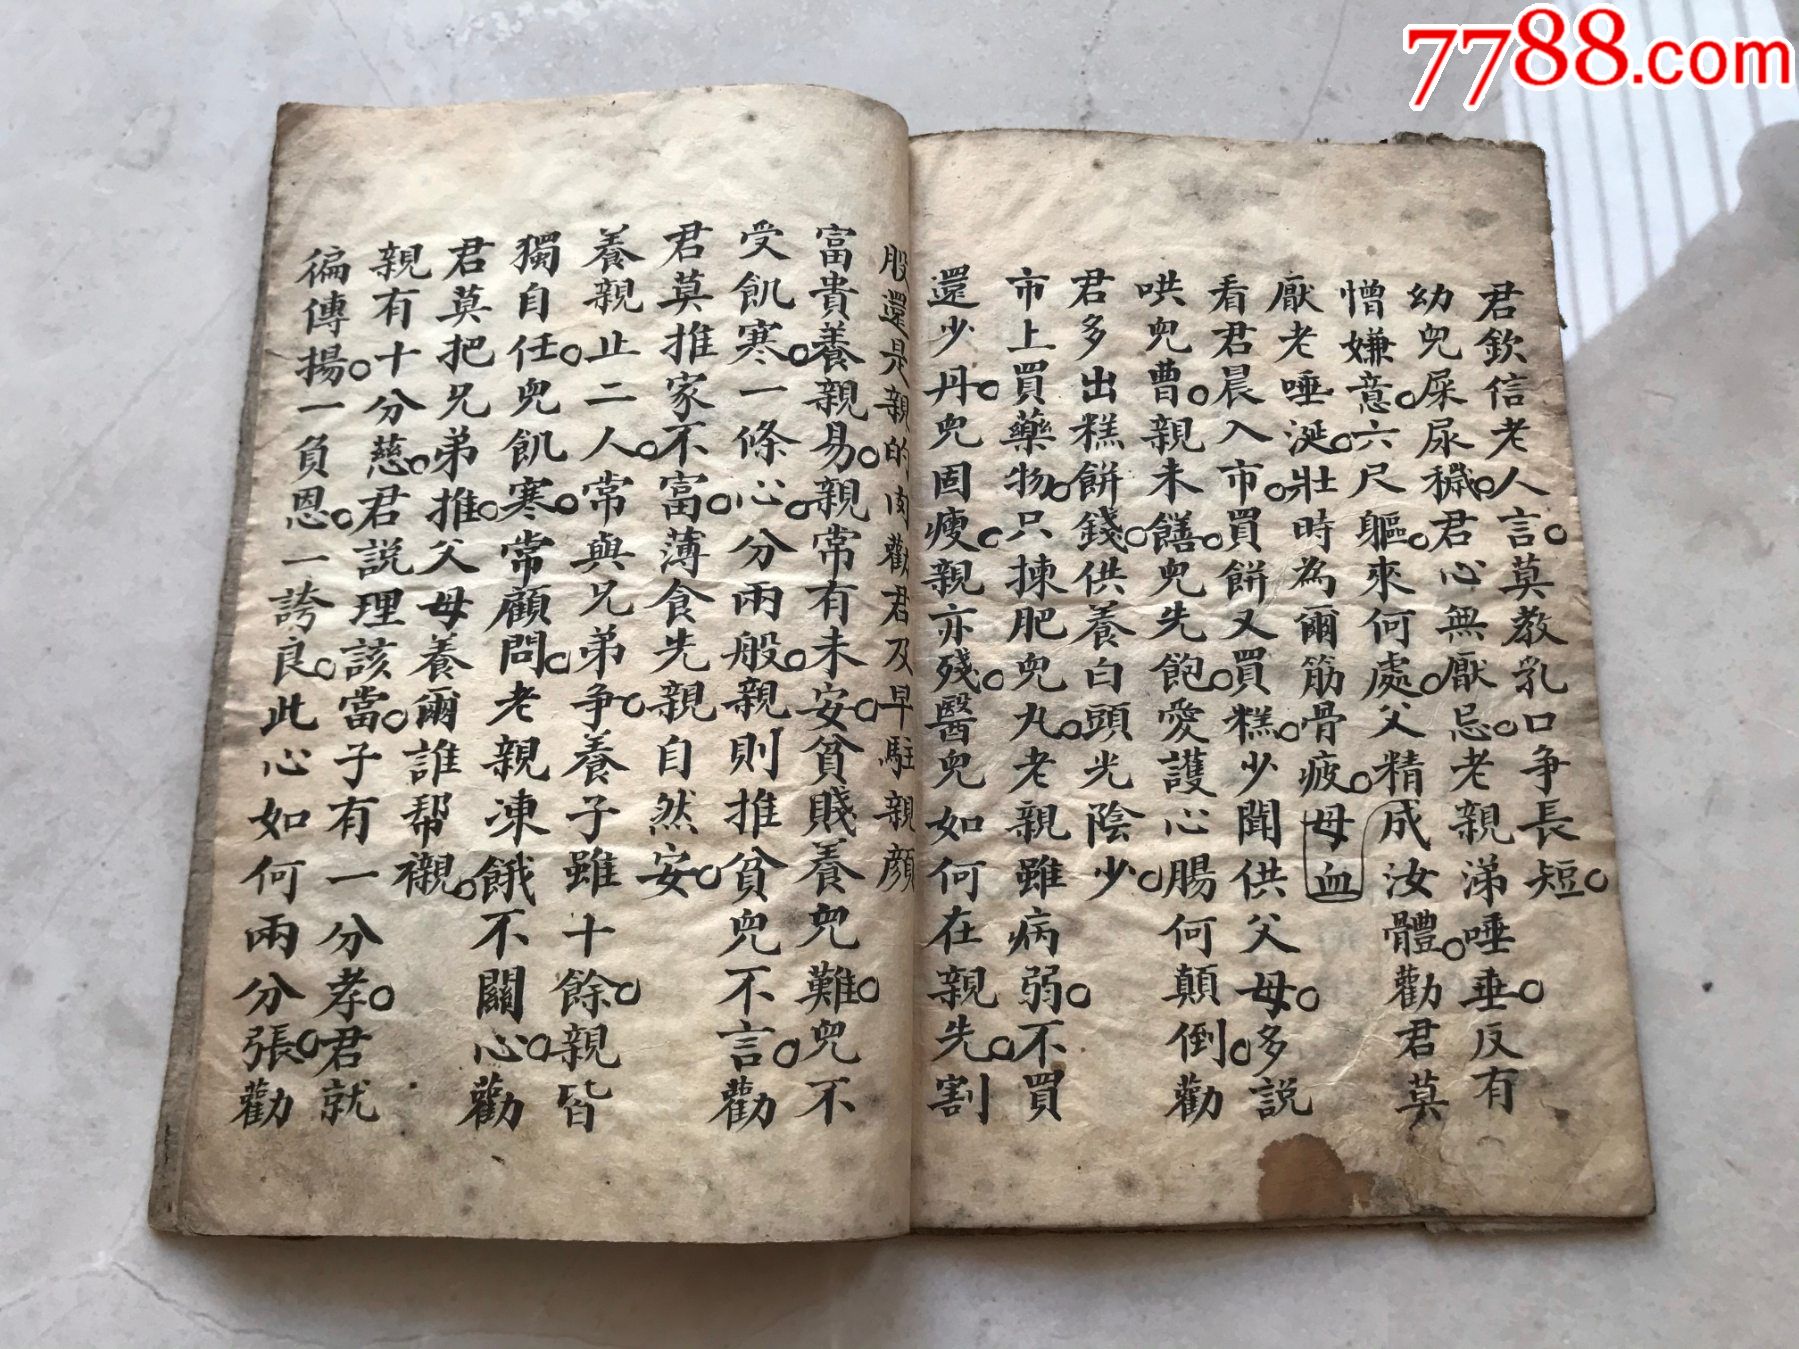 7788.com
君欽信老人言。莫教乳口争長短。
幼兒屎尿穢。君心無厭忌。老親涕唾垂。反有
憎嫌意。六尺軀。來何處。父精成汝體。勸君莫
厭老唾涎。壯時為爾筋骨疲。母血
看君晨入市。買餅又買糕。少聞供父母。多説
哄兒曹。親未饍。兒先飽。愛護心腸何顛倒。勸
君多出糕餅錢。供養白頭光陰少。
市上買藥物。只揀肥兒丸。老親雖病弱。不買
還少丹。兒固瘦。親亦殘。醫兒如何在親先。割
股還是親的肉勸君及早駐親顔
富貴養親易。親常有未安。貧賤養兒難。兒不
受飢寒。一條心。分兩般。親則推貧兒不言。勸
君莫推家不富。薄食先親自然安。
養親止二人。常與兄弟争。養子雖十餘。親皆
獨自任。兒飢寒。常顧問。老親凍餓不關心。勸
君莫把兄弟推。父母養爾誰帮襯。
親有十分慈。君説理該當。子有一分孝。君就
徧傳揚。一負恩。一誇良。此心如何兩分張。勸